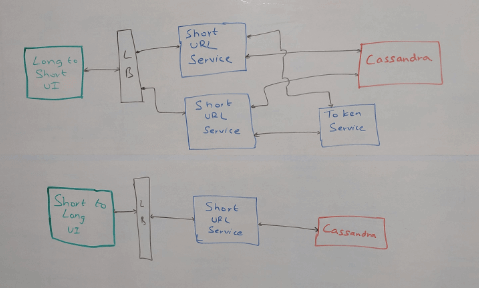 Long to
Short
UI
L
B
Short
URL
Service
Short
URL
Service
Cassandra
Token
Service
Short to
Long
UI
L
B
Short
URL
Service
Cassandra